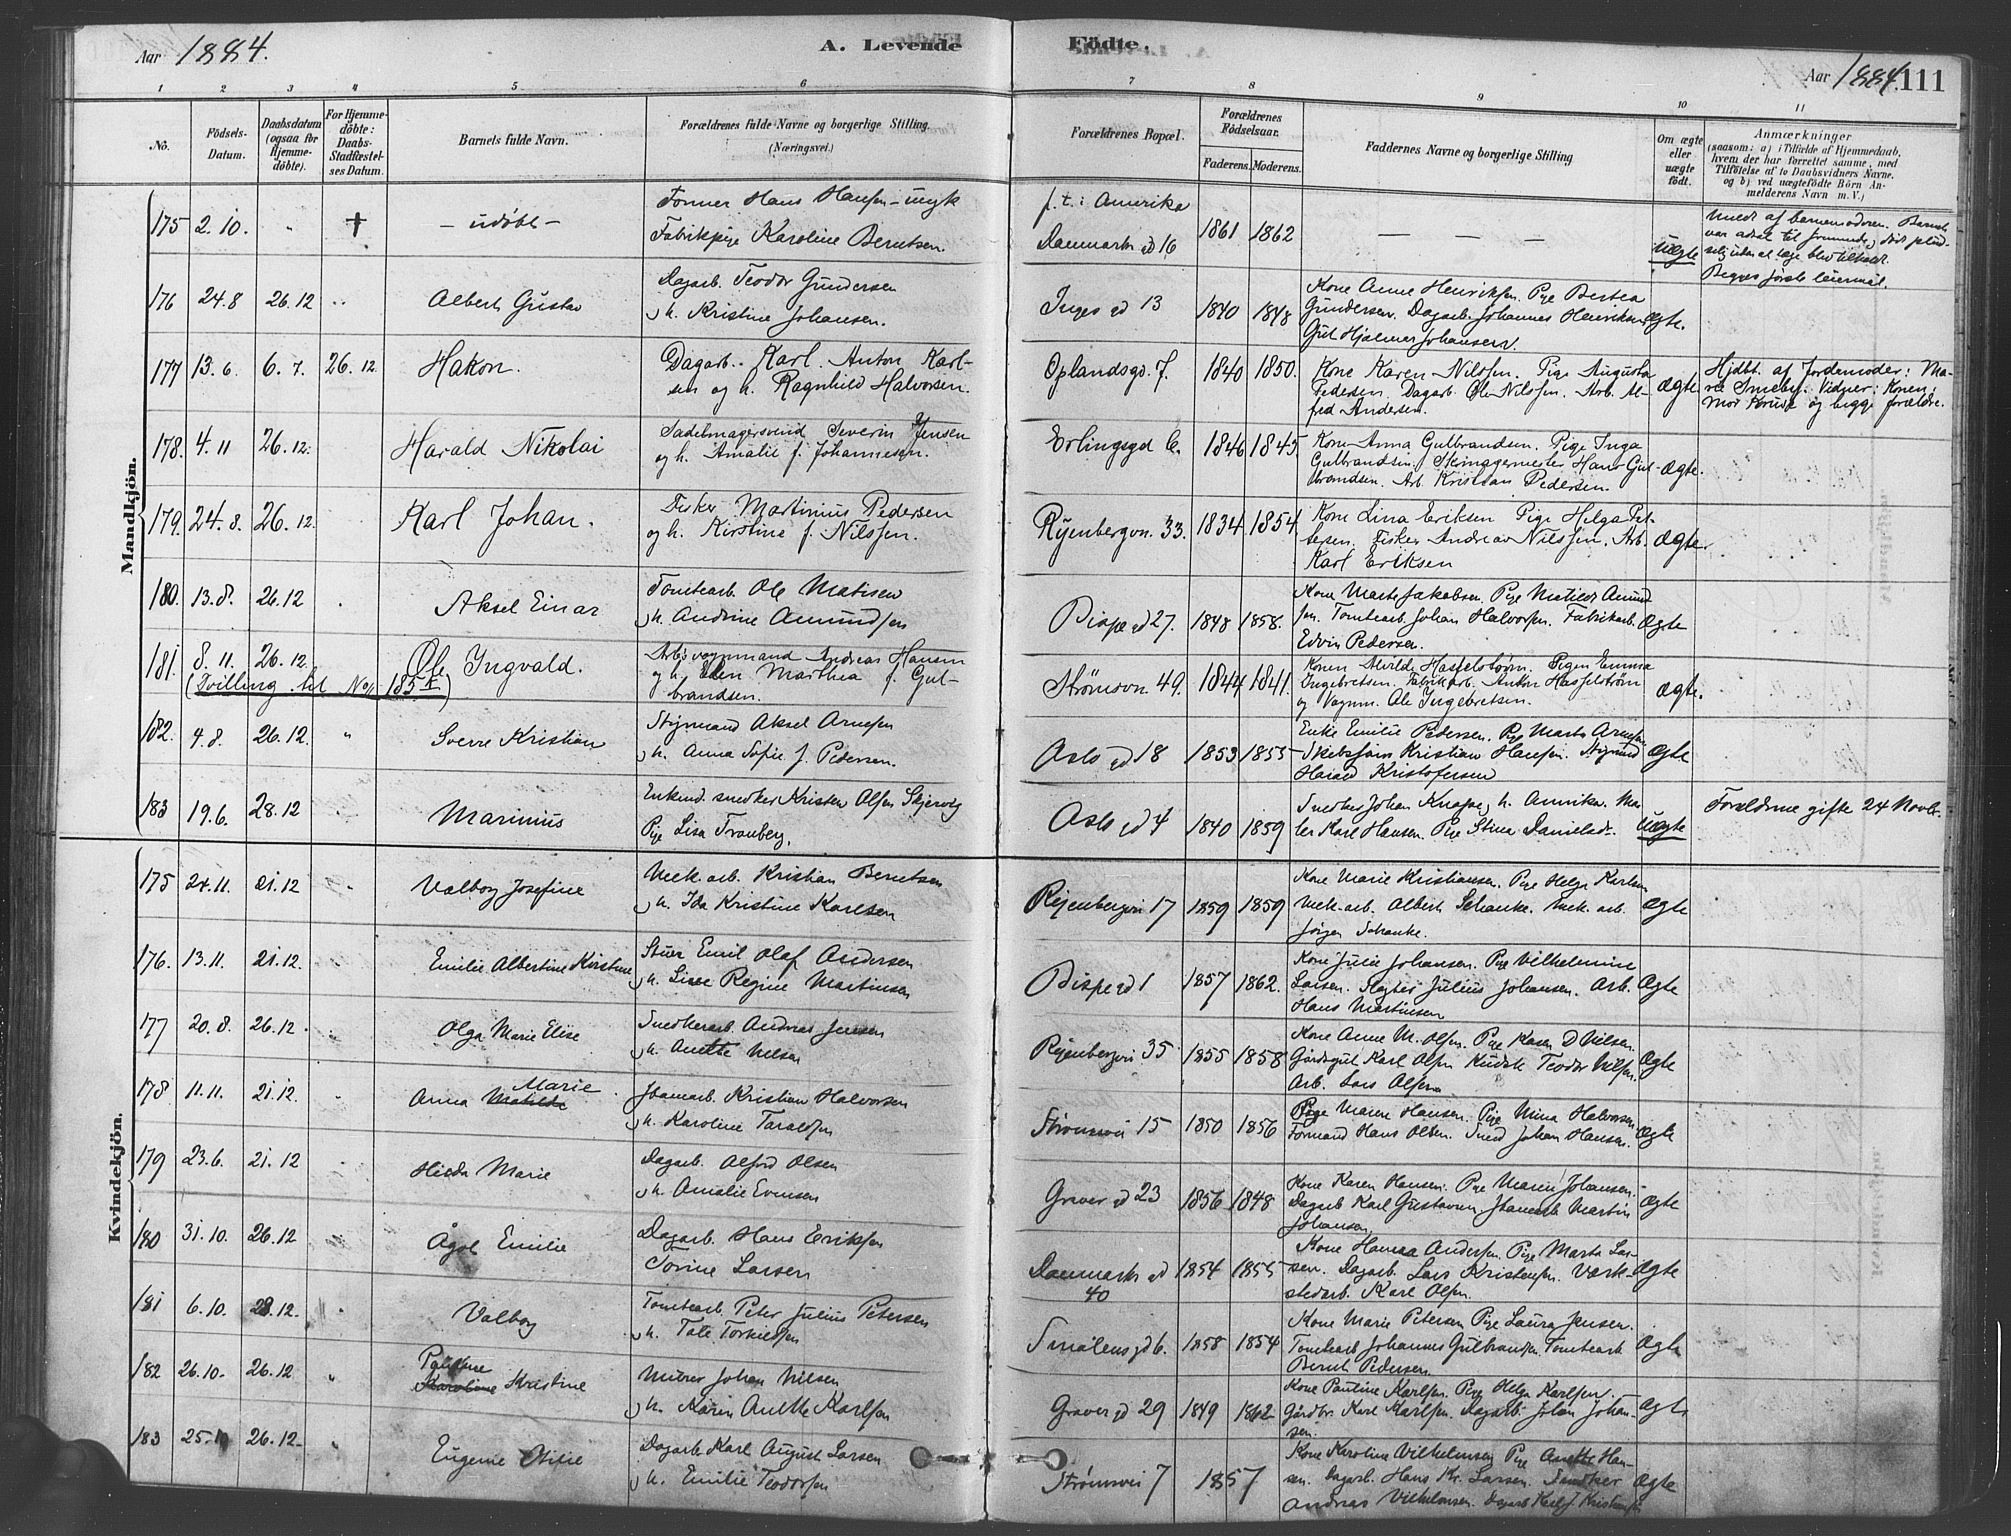 Aar 1884.
A. Levende Födte.
Aar 1884. 111
1 2 3 4 5 6 7 8 9 10 11
No.
Födsels-Datum.
Daabsdatum (ogsaa for Hjemme-döbte).
For Hjemme-döbte: Daabs-Stadfæstel-ses Datum.
Barnets fulde Navn.
Forældrenes fulde Navne og borgerlige Stilling. (Næringsvei.)
Forældrenes Bopæl.
Forældrenes Födselsaar.
Faderens. Moderens.
Faddernes Navne og borgerlige Stilling
Om ægte eller uægte födt.
Anmærkninger
(saasom: a) i Tilfælde af Hjemmedaab,
hvem der har forrettet samme, med
Tilföielse af to Daabsvidners Navne,
og b) ved uægtefödte Börn An-
melderens Navn m. V.)
Mandkjön.
175 2.10. " † – udöbt – Hans Hansen – ungk
Fabrikpige Karoline Berntsen.
f. t. i Amerika
Danmarks gd 16 1861 1862 — — — uægte
Meldt af barnemoderen. Barnet
176 24.8 26.12 " Albert Gustav Dagarb. Teodor Gundersen
h. Kristine Johansen.
Inges gd 13 1840 1848 Kone Anne Henriksen. Pige Bertea
Gundersen. Dagarb. Johannes Henriksen
Gut Hjalmar Johansen. Ægte.
177 13.6. 6.7. 26.12. Hakon. Dagarb. Karl Anton Karl-
sen og h. Ragnhild Halvorsen.
Oplandsgd. 7. 1840 1850. Kone Karen Nilssen. Pige Augusta
Pedersen. Dagarb. Ole Nilssen. Arb. Al-
fred Andersen. Ægte.
Hjdbt. af Jordemoder: Ma-
rie Smeby. Vidner: Konen:
og begge forældre.
178. 4.11 26.12. Harald Nikolai Sadelmagersvend Severin Jensen
og h. Amalie f. Johannesen.
Erlingsgd 6. 1846 1845. Kone Anna Gulbrandsen. Pige Inga
Gulbrandsen. Hans Gul-
brandsen. Arb. Kristian Pedersen. Ægte.
179. 24.8. 26.12. Karl Johan. Fisker Martinius Pedersen
og h. Kirstine f. Nilssen.
Ryenbergvn. 33. 1834 1854. Kone Lina Eriksen Pige Helga Pet-
tersen. Fisker Andreas Nilssen. Arb.
Karl Eriksen Ægte.
180. 13.8. 26.12 Aksel Einar Tomtearb. Ole Matisen
h. Andrine Amundsen
Bispegd 27. 1848 1858. Kone Marte Jakobsen. Pige Matilde Amund-
sen. Tomtearb. Johan Halvorsen. Fabrikarb.
Edvin Pedersen Ægte
181. 8.11. 26.12. Ole Ingvald. Andreas Hansen
og h. Ellen Marthea f. Gul-
brandsen.
(Tvilling til No 185 K)
Strømsvn 49. 1844 1841. Konen Alvilde Hasselstrøm. Pigen Emma
Ingebretsen. Fabrikarb. Anton Hasselstrøm
og Vognm. Ole Ingebretsen. Ægte.
182. 4.8. 26.12. " Sverre Kristian Styrmand Aksel Arnesen
h. Anna Sofie f. Pedersen.
Oslo gd 18 1853 1855 Enke Emilie Pedersen. Pige Marta Arnesen
Kristian Hansen. Styrmand
Harald Kristofersen Ægte
183 19.6. 28.12 Marinius Enkmd. snedker Kristen Olsen Skjervig
Pige Lisa Tranberg.
Oslo gd 4 1840 1859 Snedker Johan Knape, h. Annika. Ma-
ler Karl Hansen. Pige Stina Danielsdr. Uægte
Forældrene gifte 24 Novbr.
Kvindekjön.
175 24.11. 21.12 " Valborg Josefine Mek. arb. Kristian Berntsen
h. Ida Kristine Karlsen
Ryenbergvei 17 1859 1859 Kone Marie Kristiansen. Pige Helga Karlsen
Mek. arb. Albert Schanke. Mek. arb.
Jörgen Schanke. Ægte
176. 13.11. 21.12. Emilie Albertine Kirstine Stuer Emil Olaf Andersen
h. Lisse Regine Martinsen
Bispegd 1 1857 1862. Kone Julie Johansen. Pige Vilhelmine
Larsen. Slagter Julius Johansen. Arb.
Hans Martinsen Ægte
177 20.8. 26.12. Olga Marie Elise Snedkerarb. Andreas Jensen
h. Anette Nilsen
Ryenbergvei 35 1855 1858 Kone Anne M. Olsen. Pige Karen D Nilsen.
Gårdsgut Karl Olsen Kudsk Teodor Nilsen.
Arb. Lars Olsen Ægte
178. 11.11. 21.12. Anna Matilde Marie Kristian Halvorsen
h. Karoline Taraldsen
Strømsvei 15 1850 1856 Pige Maren Hansen. Pige Mina Halvorsen
Formand Hans Olsen. Snedk. Johan Hansen. Ægte
179 23.6. 21.12 Hilda Marie Dagarb. Alfred Olsen
h. Amalie Evensen
Graver gd 23 1856 1848 Kone Karen Hansen. Pige Maren Johansen.
Dagarb Karl Gustavsen Martin
Johansen Ægte
180 31.10. 26.12 Ågot Emilie Dagarb. Hans Eriksen
Torine Larsen
Danmarks gd 40 1854 1855 Kone Hanna Andersen. Pige Marta Lar-
sen. Dagarb. Lars Kristensen. Værk-
stedarb. Karl Olsen. Ægte
181 6.10. 28.12. " Valborg Tomtearb. Peter Julius Petersen
h. Tale Torkildsen
Smålens gd 6. 1858 1854 Kone Marie Petersen Pige Laura Jensen.
Tomtearb Johannes Gulbrandsen. Tomtearb
Bernt Pedersen Ægte
182 26.10. 26.12 " Karoline Kristine Murer Johan Nilsen
h. Karen Anette Karlsen
Graver gd 29 1849 1862 Kone Pauline Karlsen. Pige Helga Karlsen.
Gårdbr. Karl Karlsen. Dagarb. Johan Johan-
sen. Ægte
183 26.12. Eugenie Otilie Dagarb Karl August Larsen
h. Emilie Teodorsen
Strømsvei 7 1857 Kone Karoline Vilhelmsen Pige Anette Han-
sen. Dagarb. Hans Kr. Larsen. Snedker
Andreas Vilhelmsen. Dagarb Ægte